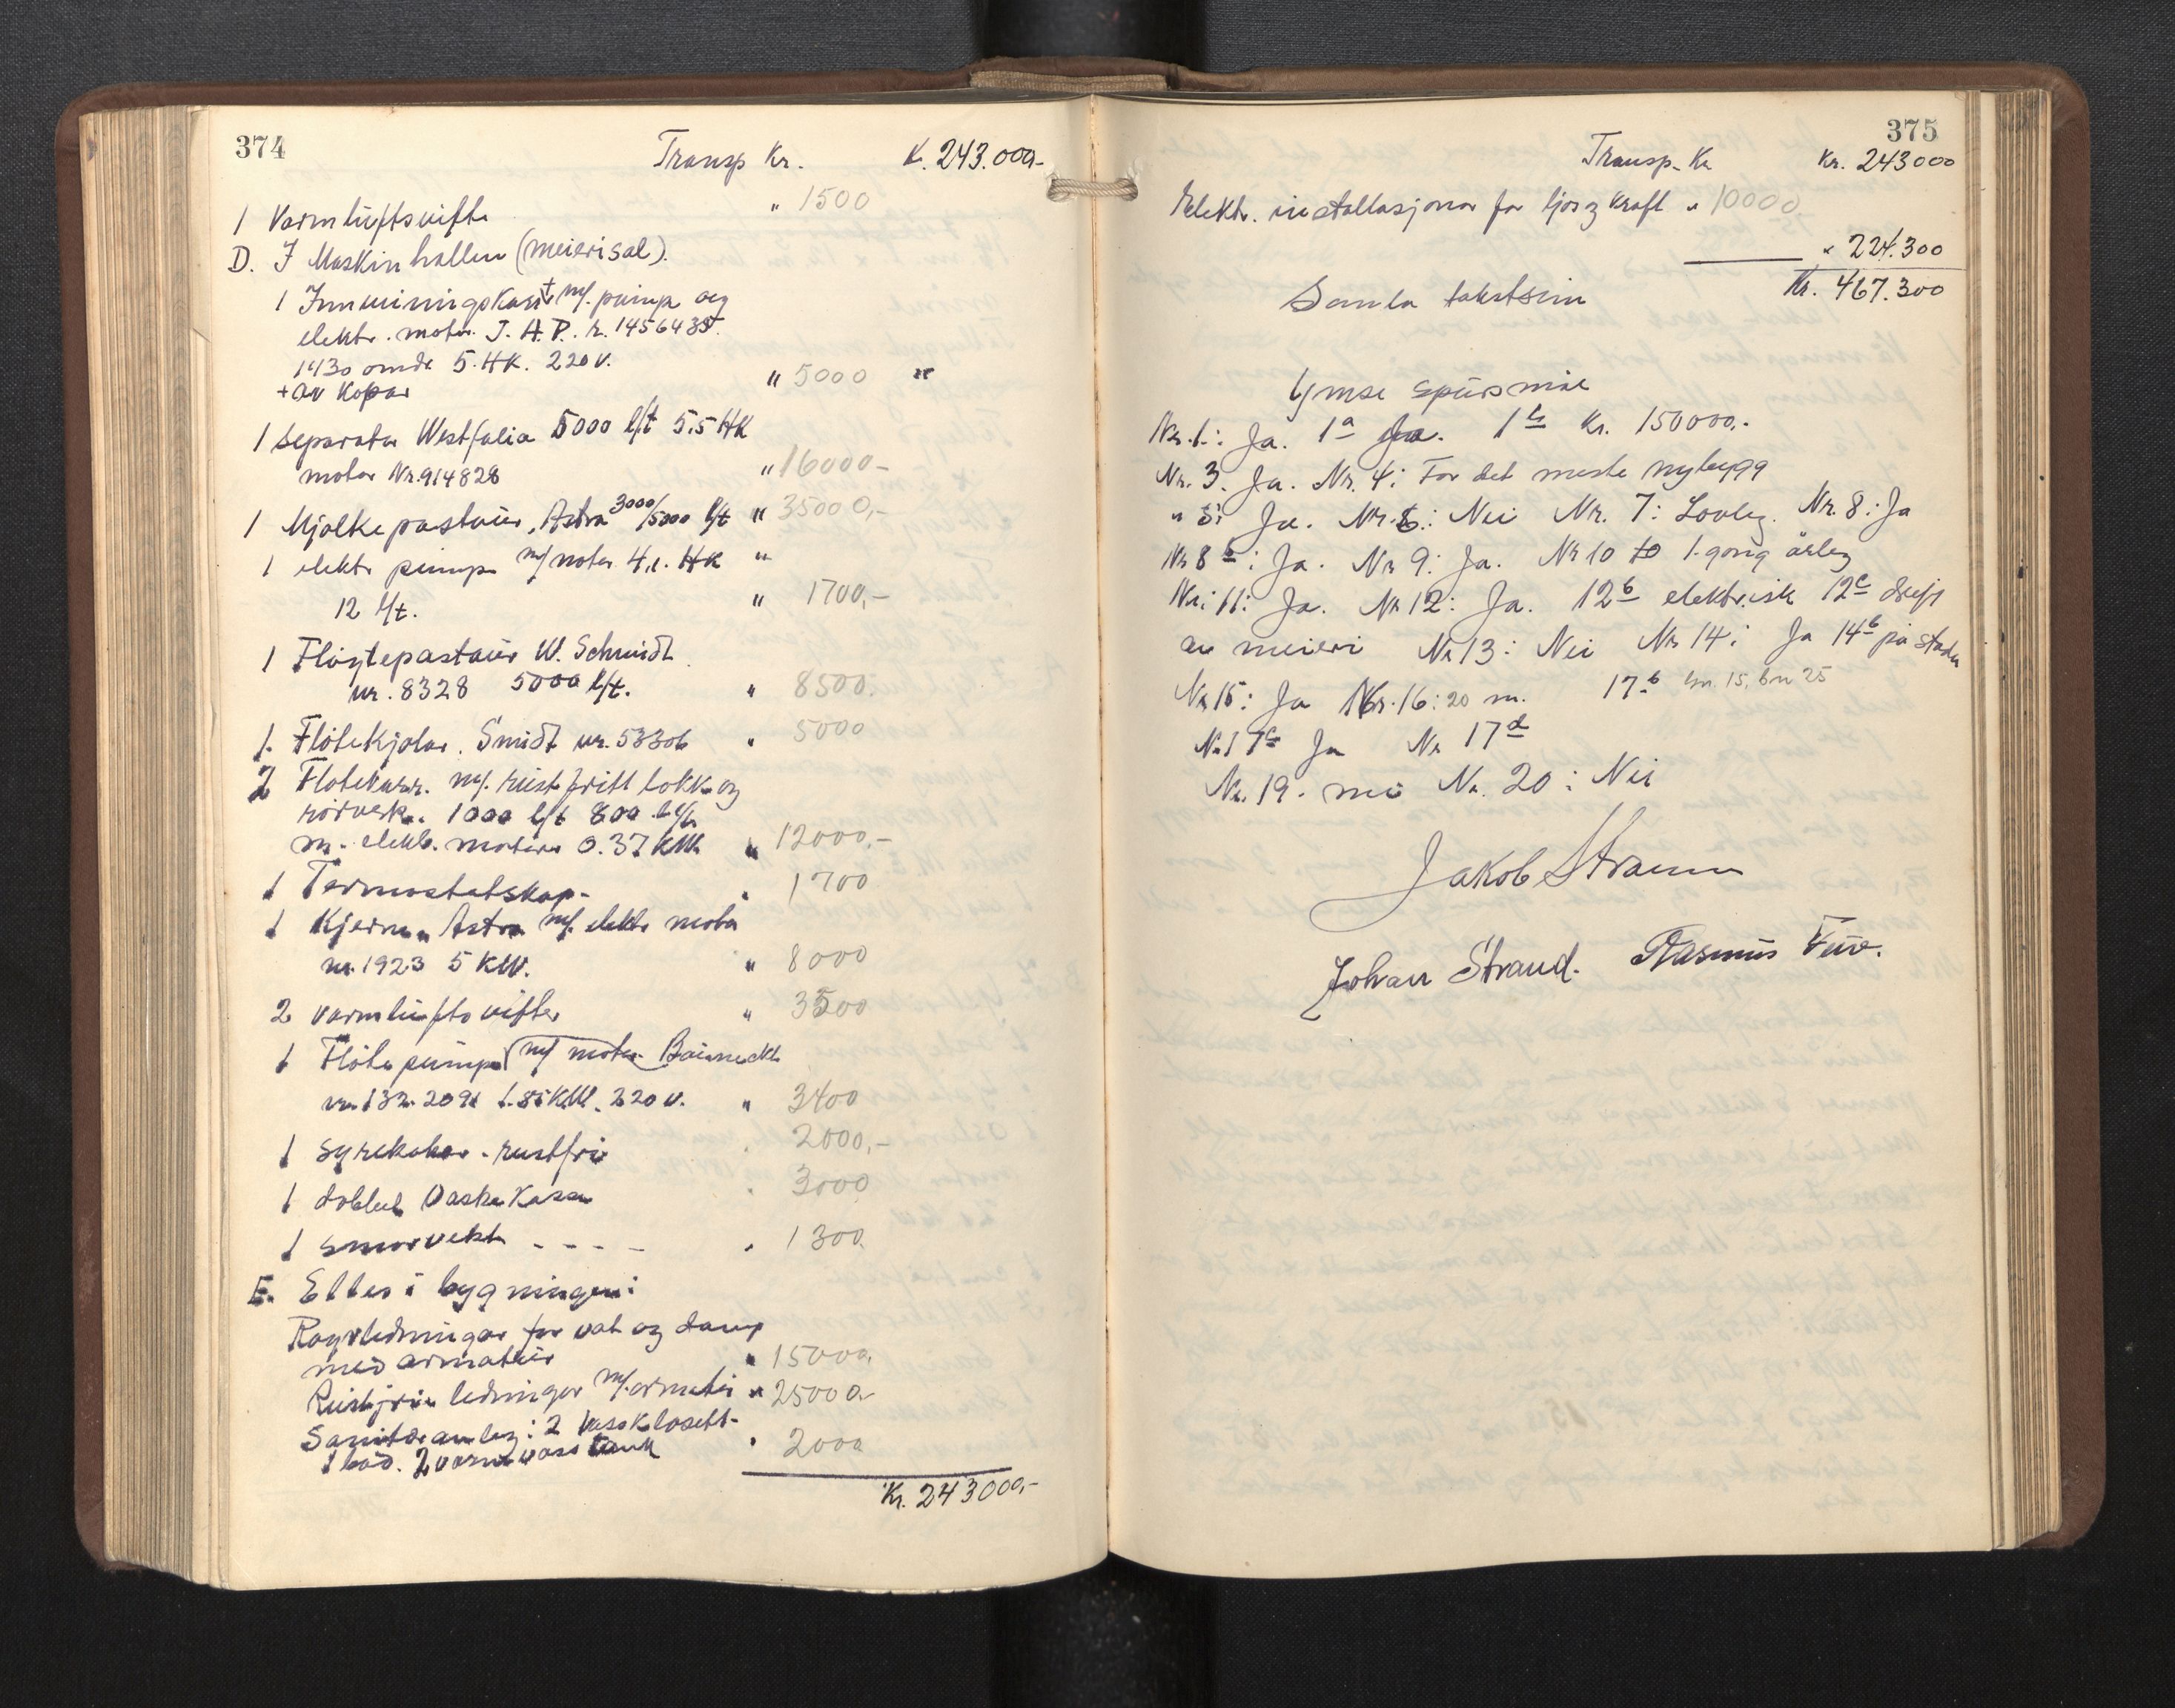 374
Transp Kr. K. 243.000.-
1 Varmluftsvifte " 1500
D. I Maskinhallen (meierisal).
1 Innveiningskar+ m/. pump og
elektr. motor. 
1430 omdr 5. HK. 220 v.
+ av kopar " 5000 "
1 Separator Westfalia 5000 l/t 5.5 HK
motor Nr. 914828 " 16000-
1 Mjølkepastøur, Astra 3000/5000 l/t " 35000,-
1 elektr pump m/ motor 4,1. HK "
12 l/t. " 1700,-
1 Fløytepastøur W. Schmidt
nr. 8328 5000 l/t. " 8500.
1. Fløtekjølar. Smidt nr. 53306 " 5000
2 Fløtekarr. m/. rustfritt lokk og
rørverk. 1000 l/t 800 l/t
m. elektr. motorer 0.37 KW. " 12000,-
1 Termostatskap- " 1700
1 Kjerne " Astra m/. elektr motor
nr. 1923 5 KW. " 8000
2 varmluftsvifter " 3500
1 Fløtepumpe m/ motor 
nr. 132. 2091 1.85 KW. 220 v. " 3400
1 syrekokar - rustfri " 2000,-
1 dobbel Vaskekasse " 3000
1 smørvekt - - - - " 1300
E. Elles i bygningen:
Røyrledningar for vatn og damp
med armatur " 15000,
Rustfrie ledningar m/. armatur " 25000-
Sanitæranleg: 2 vassklosett-
1 bad. 2 varmvasstank " 2000
Kr. 243000,-
375
Transp. Kr Kr. 243000
Elektr. installasjonar for ljos og kraft " 10000,
" 224.300
Samla takstsum Kr. 467.300
Ymse spursmål
Nr. 1.: Ja. 1a Ja. 1b Kr. 150000,-
Nr. 3. Ja. Nr. 4: For det meste nybygg
" 5: Ja. Nr. 6: Nei Nr. 7: Lovleg. Nr. 8: Ja
Nr 8b: Ja. Nr 9: Ja. Nr 10 to 1. gong årleg
Nr: 11: Ja. Nr 12: Ja. 12b elektrisk 12c drift
av meieri Nr 13: Nei Nr 14: Ja 14b på staden
Nr 15: Ja Nr. 16: 20 m. 17b gn. 15, bn 25
Nr 17c Ja Nr 17d
Nr. 19. nei Nr. 20: Nei
Jakob Straum
Johan Strand. Rasmus Five.